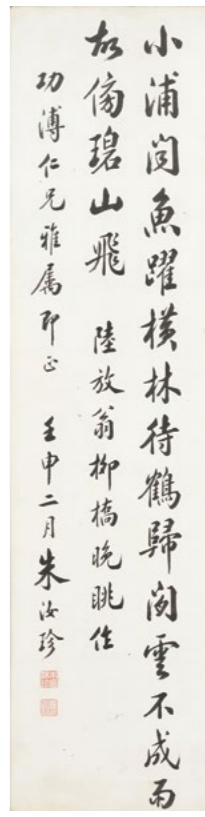 小浦聞魚躍橫林待鶴歸閒雲不成雨
故傍碧山飛 陸放翁柳橋晚眺作
功溥仁兄雅屬即正 壬申二月朱汝珍